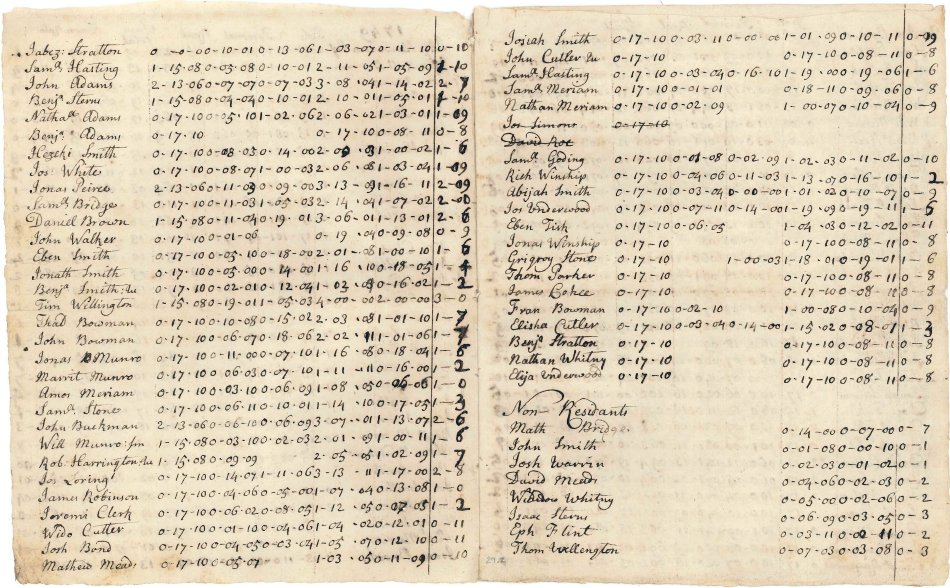 Jabez Stratton 0-0-00-10-01 0-13-06 1-03-07 0-11-10 0-10
Saml Hasting 1-15-08 0-05-08 0-10-01 2-11-05 1-05-09 1-10
John Adams 2-13-06 0-07-07 0-07-03 3-08-04 1-14-02 2-7
Benja Sterns 1-15-08 0-04-04 0-10-01 2-10-01 1-05-01 1-10
Nathall Adams 0-17-10 0-05-10 1-02-06 2-06-02 1-03-01 1-09
Benja Adams 0-17-10 0-17-10 0-08-11 0-8
Hezeki Smith 0-17-10 0-08-05 0-14-00 2-0 1-00-02 1-6
Jos White 0-17-10 0-08-07 1-00-03 2-06-08 1-03-04 1-09
Jonas Peirce 2-13-06 0-11-03 0-09-00 3-13-09 1-16-11 2-09
Saml Bridge 0-17-10 0-11-03 1-05-03 2-14-04 1-07-02 2-00
Daniel Brown 1-15-08 0-11-04 0-19-01 3-06-01 1-13-01 2-6
John Walker 0-17-10 0-01-06 0-19-04 0-09-08 0-9
Eben Smith 0-17-10 0-05-10 0-18-00 2-01-08 1-00-10 1-6
Jonath Smith 0-17-10 0-05-00 0-14-00 1-16-10 0-18-05 1-4
Benja Smith 0-17-10 0-02-01 0-12-04 1-02-03 0-16-02 1-2
Tim Wellington 1-15-08 0-19-01 1-05-03 4-00-00 2-00-00 3-0
Thad Bowman 0-17-10 0-10-08 0-15-02 2-03-08 1-01-10 1-7
John Bowman 0-17-10 0-06-07 0-18-06 2-02-11 1-01-06 1-7
Jonas Munro 0-17-10 0-11-00 0-07-10 1-16-08 0-18-04 1-6
Marrit Munro 0-17-10 0-06-03 0-07-10 1-11-11 0-16-00 1-2
Amos Meriam 0-17-10 0-03-10 0-06-09 1-08-05 1-0
Saml Stone 0-17-10 0-06-11 0-10-01 1-14-10 0-17-05 1-3
John Buckman 2-13-06 0-06-10 0-06-09 3-07-01 1-13-07 2-6
Will Munro Jun 1-15-08 0-03-10 0-02-03 2-01-09 1-00-11 1-6
Rob Harrington 1-15-08 0-09-09 2-05-05 1-02-09 1-7
Jos Loring 0-17-10 0-14-07 1-11-06 3-13-11 1-17-00 2-8
James Robinson 0-17-10 0-04-06 0-05-00 1-07-04 0-13-08 1-0
Jeremi Clerk 0-17-10 0-06-02 0-08-05 1-12-05 1-2
Wido Cutler 0-17-10 0-01-10 0-04-06 1-04-02 0-12-01 0-11
Josh Bond 0-17-10 0-04-05 0-03-04 1-05-07 0-12-10 0-11
Mathew Mead 0-17-10 0-05-07 1-03-05 0-11-09 0-10
Josiah Smith 0-17-10 0-03-11 0-00-00 1-01-09 0-10-11 0-09
John Cutler 0-17-10 0-17-10 0-08-11 0-8
Saml Hasting 0-17-10 0-03-04 0-16-10 1-19-00 0-19-06 1-6
Saml Meriam 0-17-10 0-01-01 0-18-11 0-09-06 0-8
Nathan Meriam 0-17-10 0-02-09 1-00-07 0-10-04 0-9
Jos Simons 0-17-10
David Roe
Saml Goding 0-17-10 0-01-08 0-02-09 1-02-03 0-11-02 0-10
Rich Winship 0-17-10 0-04-06 0-11-03 1-13-07 0-16-10 1-2
Abijah Smith 0-17-10 0-03-04 0-00-00 1-01-02 0-10-07 0-9
Jos Underwood 0-17-10 0-07-11 0-14-00 1-19-09 0-19-11 1-6
Eben Fisk 0-17-10 0-06-05 1-04-03 0-12-02 0-11
Jonas Winship 0-17-10 0-17-10 0-08-11 0-8
Grigroy Stone 0-17-10 1-00-03 1-18-01 0-19-01 1-6
Thom Parker 0-17-10 0-17-10 0-08-11 0-8
James Cohee 0-17-10 0-17-10 0-08-11 0-8
Fran Bowman 0-17-10 0-02-10 1-00-08 0-10-04 0-9
Elisha Cutler 0-17-10 0-03-04 0-14-00 1-15-02 0-08-01 1-3
Benja Stratton 0-17-10 0-17-10 0-08-11 0-8
Nathan Whitny 0-17-10 0-17-10 0-08-11 0-8
Elija Underwood 0-17-10 0-17-10 0-08-11 0-8
Non-Residants
Math Bridge 0-14-00 0-07-00-7
John Smith 0-01-08 0-00-10 0-1
Josh Warrin 0-02-03 0-01-02 0-1
David Mead 0-04-06 0-02-03 0-2
Widdow Whitny 0-05-00 0-02-06 0-2
Isaac Sterns 0-06-09 0-03-05 0-3
Eph Flint 0-03-11 0-02-11 0-2
Thom Wellengton 0-07-03 0-03-08 0-3